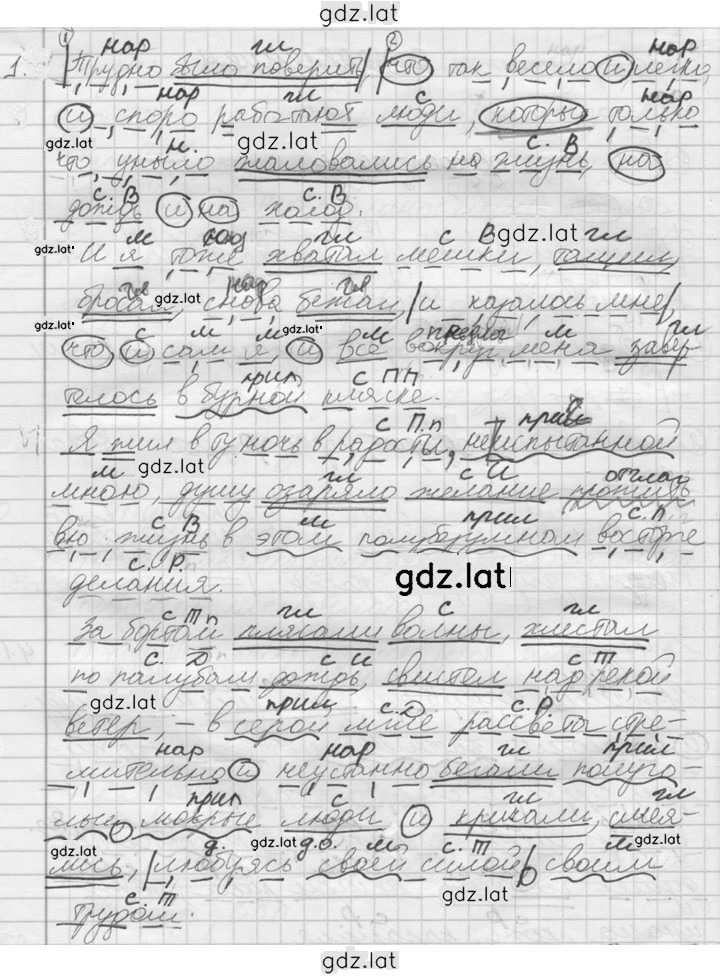 gdz.lat
① нар гл ② нар
1. Трудно было поверить, что так весело и легко,
нар гл с нар
и споро работают люди, которые только
н. с. В
что уныло жаловались на жизнь, на
с. В с. В
дождь и на холод.
gdz.lat
м гл с В гл
И я тоже хватал мешки, тащил,
gdz.lat
нар
бросал, снова бежал, и казалось мне,
gdz.lat
с м м м м гл
что и сам я, и всё вокруг меня завер-
gdz.lat
прил с Пп
телось в бурной пляске.
с П.п прич
Я жил в ту ночь в радости, не испытанной
gdz.lat
м гл с И
мною, душу озаряло желание прожить
с В м прил с.п
всю жизнь в этом полубезумном восторге
с. Р.
делания.
gdz.lat
с Тп гл с гл
За бортом плясали волны, хлестал
с. Д с И с Т
по палубам дождь, свистел над рекой
gdz.lat
прил с.Д с.Р
ветер, – в серой мгле рассвета стре-
нар нар гл прил
мительно и неустанно бегали полуго-
прил с гл гл
лые, мокрые люди и кричали, смея-
gdz.lat
д. д.о. м с.Т м
лись, любуясь своей силой, своим
gdz.lat
с. Т
трудом.
gdz.lat
gdz.lat